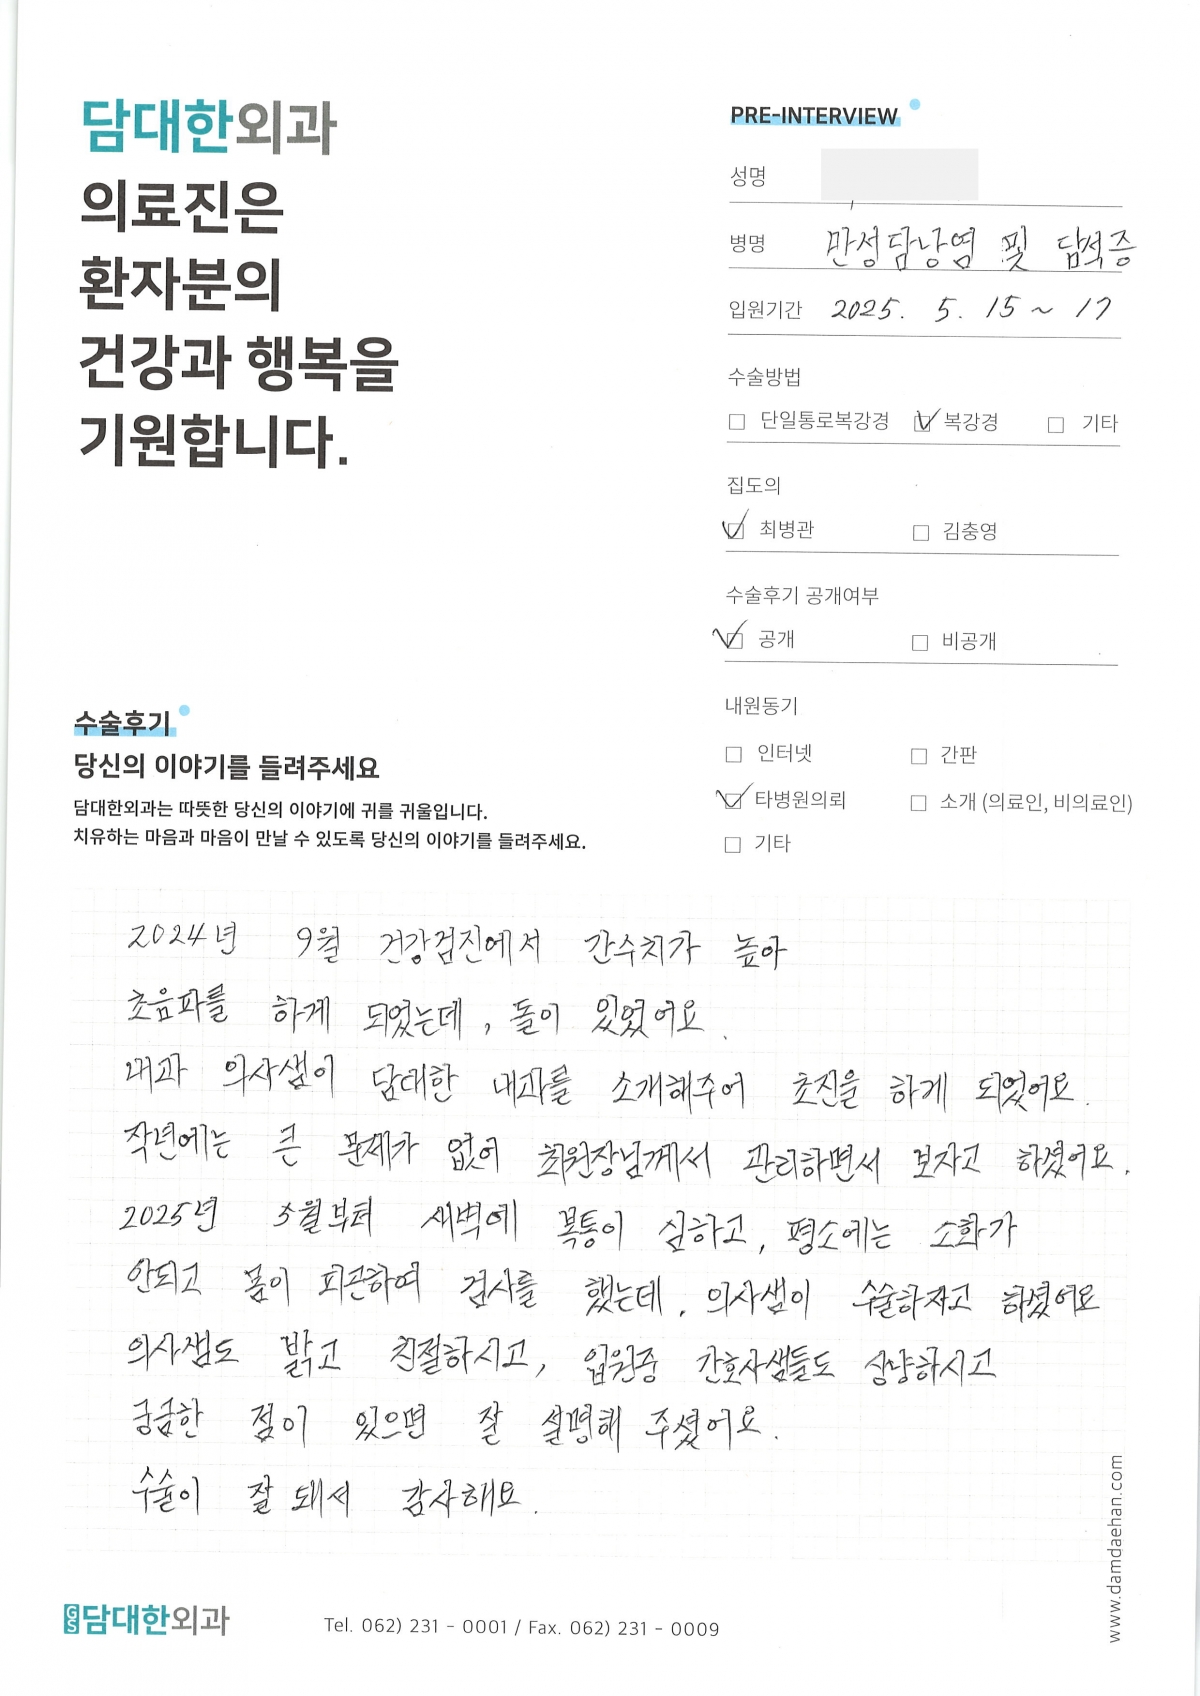 담대한외과
의료진은
환자분의
건강과 행복을
기원합니다.
PRE-INTERVIEW
성명
병명 만성담낭염 및 담석증
입원기간 2025. 5. 15 ~ 17
수술방법
☐ 단일통로복강경 ☑ 복강경 ☐ 기타
집도의
☑ 최병관 ☐ 김충영
수술후기 공개여부
☑ 공개 ☐ 비공개
내원동기
☐ 인터넷 ☐ 간판
☑ 타병원의뢰 ☐ 소개 (의료인, 비의료인)
☐ 기타
수술후기
당신의 이야기를 들려주세요
담대한외과는 따뜻한 당신의 이야기에 귀를 귀울입니다.
치유하는 마음과 마음이 만날 수 있도록 당신의 이야기를 들려주세요.
2024년 9월 건강검진에서 간수치가 높아
초음파를 하게 되었는데, 돌이 있었어요.
내과 의사샘이 담대한 내과를 소개해주어 초진을 하게 되었어요.
작년에는 큰 문제가 없어 최원장님께서 관리하면서 보자고 하셨어요.
2025년 5월부터 새벽에 복통이 심하고, 평소에는 소화가
안되고 몸이 피곤하여 검사를 했는데, 의사샘이 수술하자고 하셨어요
의사샘도 밝고 친절하시고, 입원중 간호사샘들도 상냥하시고
궁금한 점이 있으면 잘 설명해 주셨어요.
수술이 잘 돼서 감사해요.
GS담대한외과
Tel. 062) 231 - 0001 / Fax. 062) 231 - 0009
www.damdaehan.com